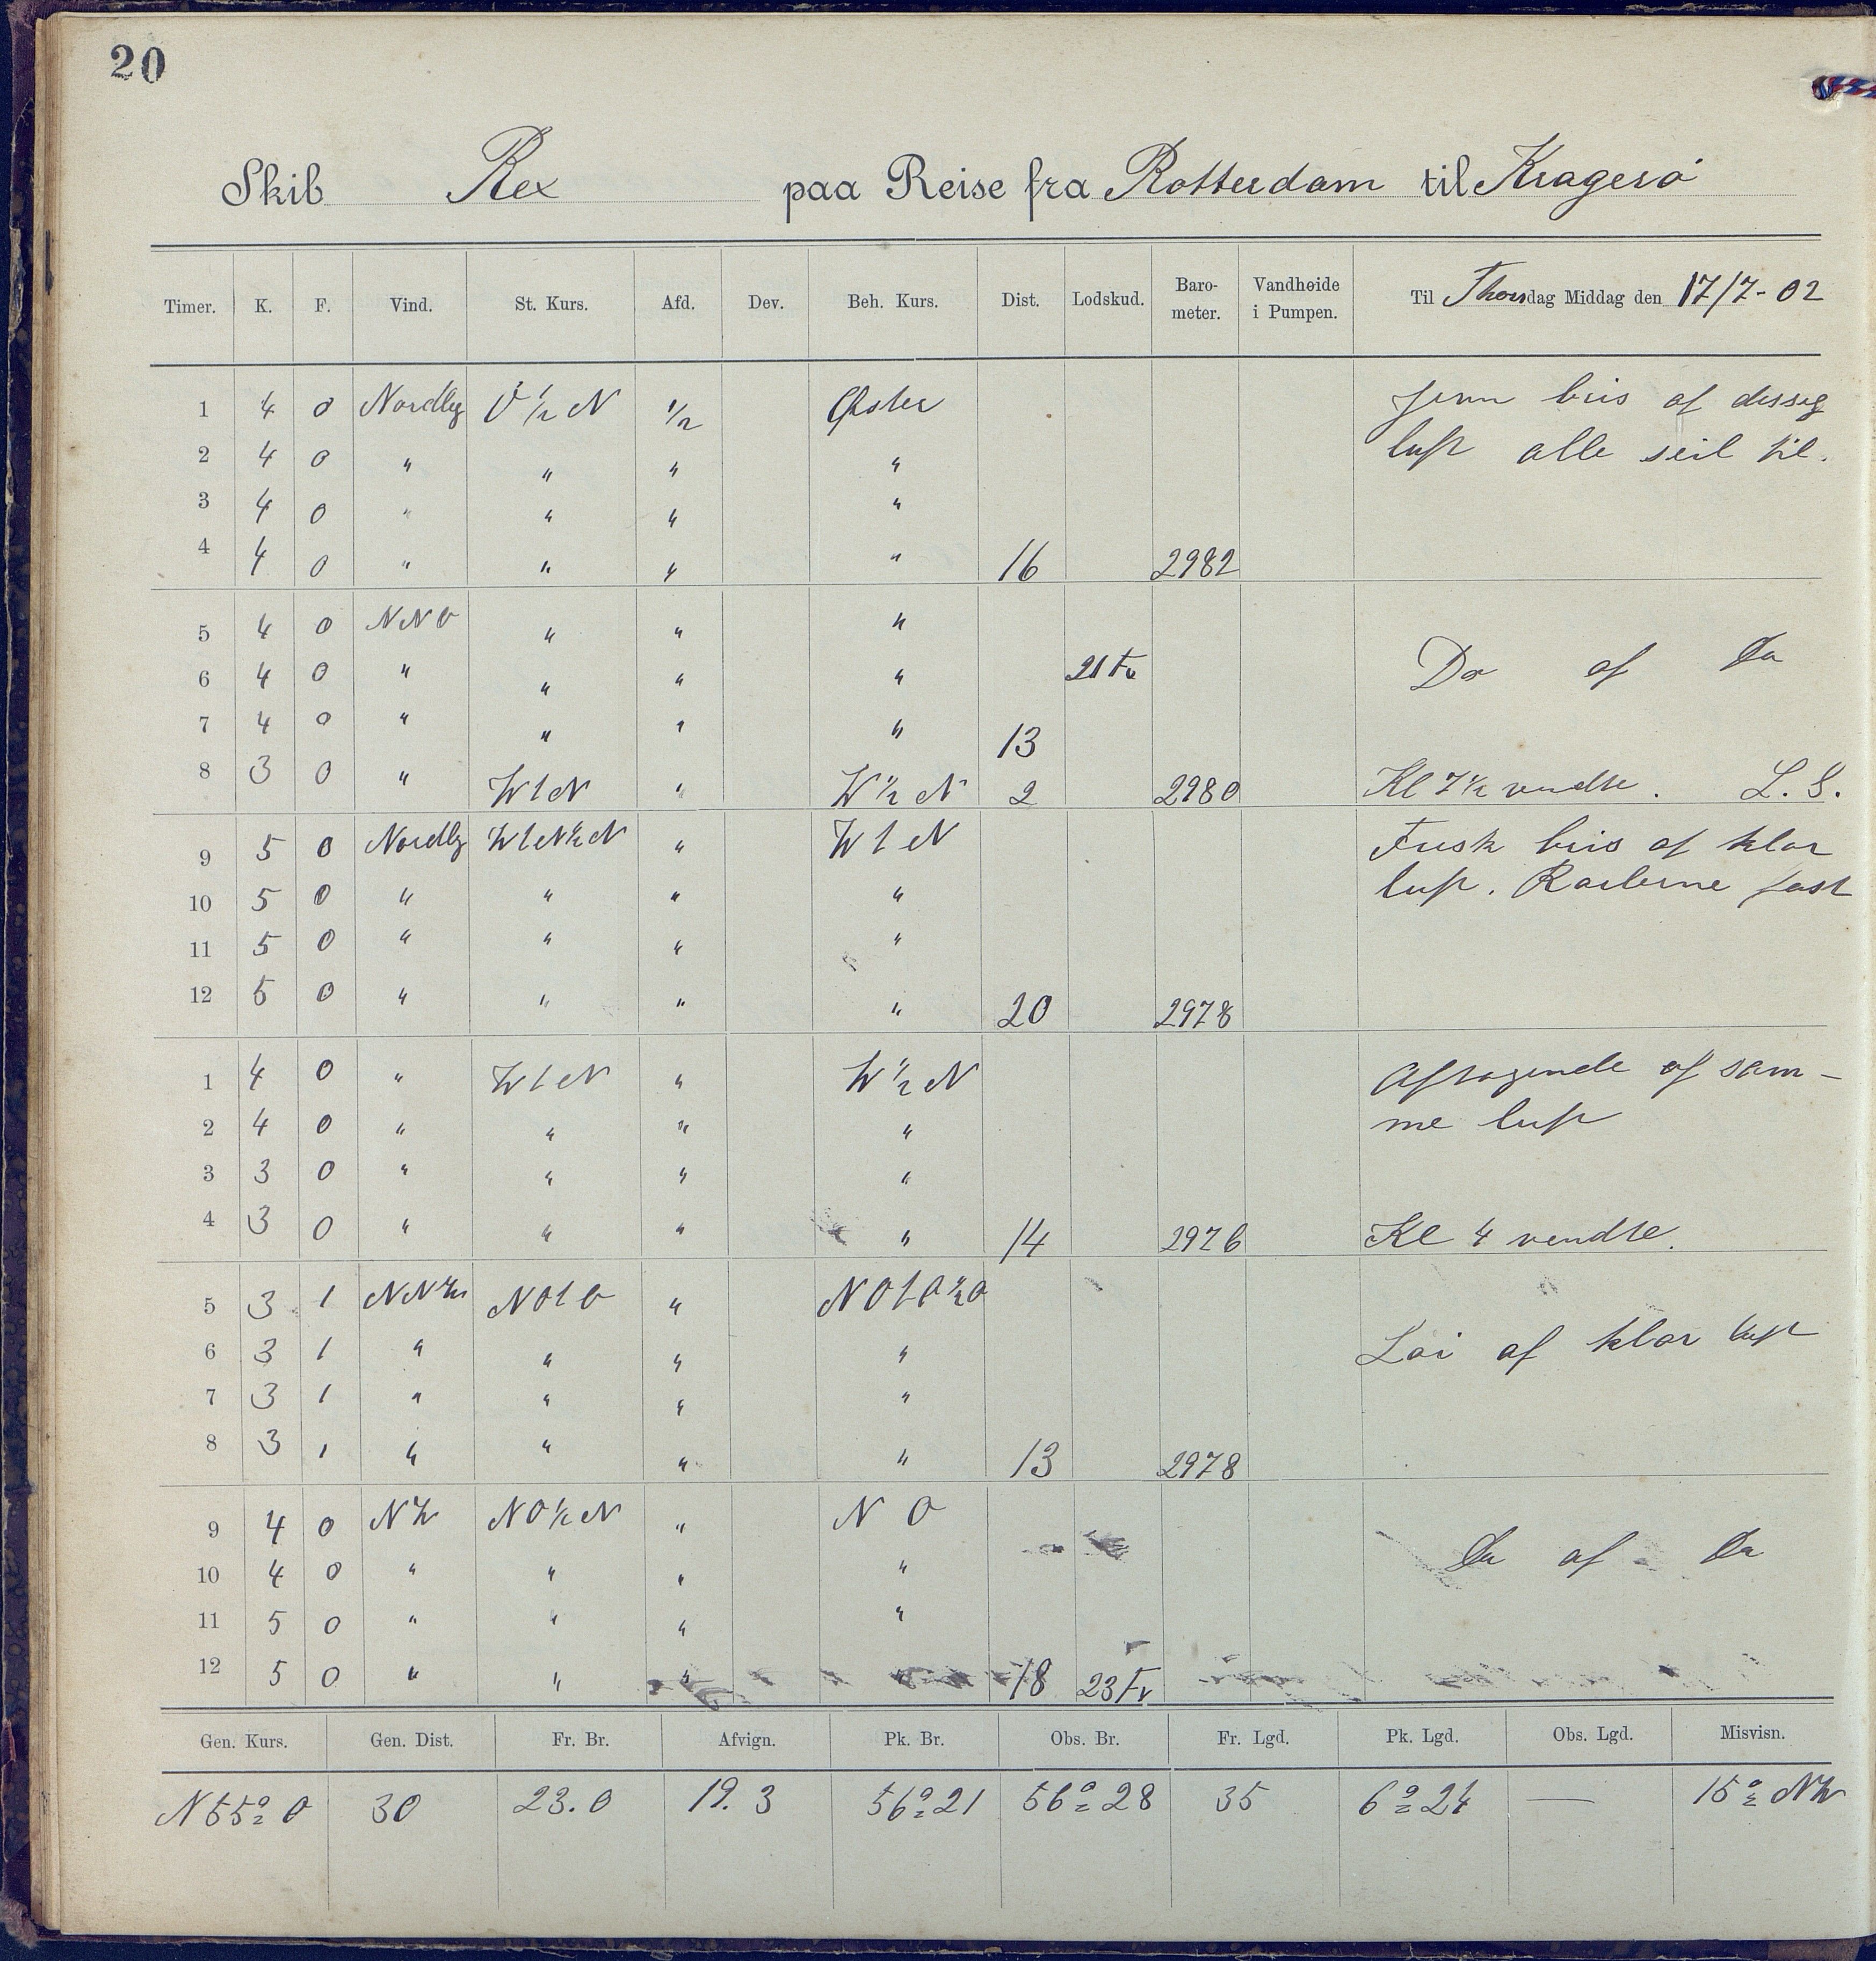 20
Skib Rex paa Reise fra Rotterdam til Kragerö
Timer. K. F. Vind. St. Kurs. Afd. Dev. Beh. Kurs. Dist. Lodskud. Baro-meter. Vandhøide i Pumpen. Til Thorsdag Middag den 17/7-02
1 4 0 Nordlig O ½ N ½ Øster Jevn bris af disseg
2 4 0 " " " " luft alle seil til.
3 4 0 " " " "
4 4 0 " " " " 16 2982
5 4 0 NNO " " "
6 4 0 " " " " 21 Fv Do af Do
7 4 0 " " " " 13
8 3 0 " WtN " W ½ N 2 2980 Kl 7½ vendte. L. S.
9 5 0 Nordlig WtN½N " WtN Frisk bris af klar
10 5 0 " " " " luft. Raaerne fast
11 5 0 " " " "
12 5 0 " " " " 20 2978
1 4 0 " WtN " W ½ N Aftagende af sam-
2 4 0 " " " " me luft
3 3 0 " " " "
4 3 0 " " " " 14 2976 Kl 4 vendte.
5 3 1 NNW NOtO " NOtO½O
6 3 1 " " " " Löi af klar luft
7 3 1 " " " "
8 3 1 " " " " 13 2978
9 4 0 NW NO½N " N O
10 4 0 " " " " Do af Do
11 5 0 " " " "
12 5 0 " " " " 18 23 Fv
Gen. Kurs. Gen. Dist. Fr. Br. Afvign. Pk. Br. Obs. Br. Fr. Lgd. Pk. Lgd. Obs. Lgd. Misvisn.
N 55° O 30 23.0 19.3 56° 21 56° 28 35 6° 24 — 15° NW